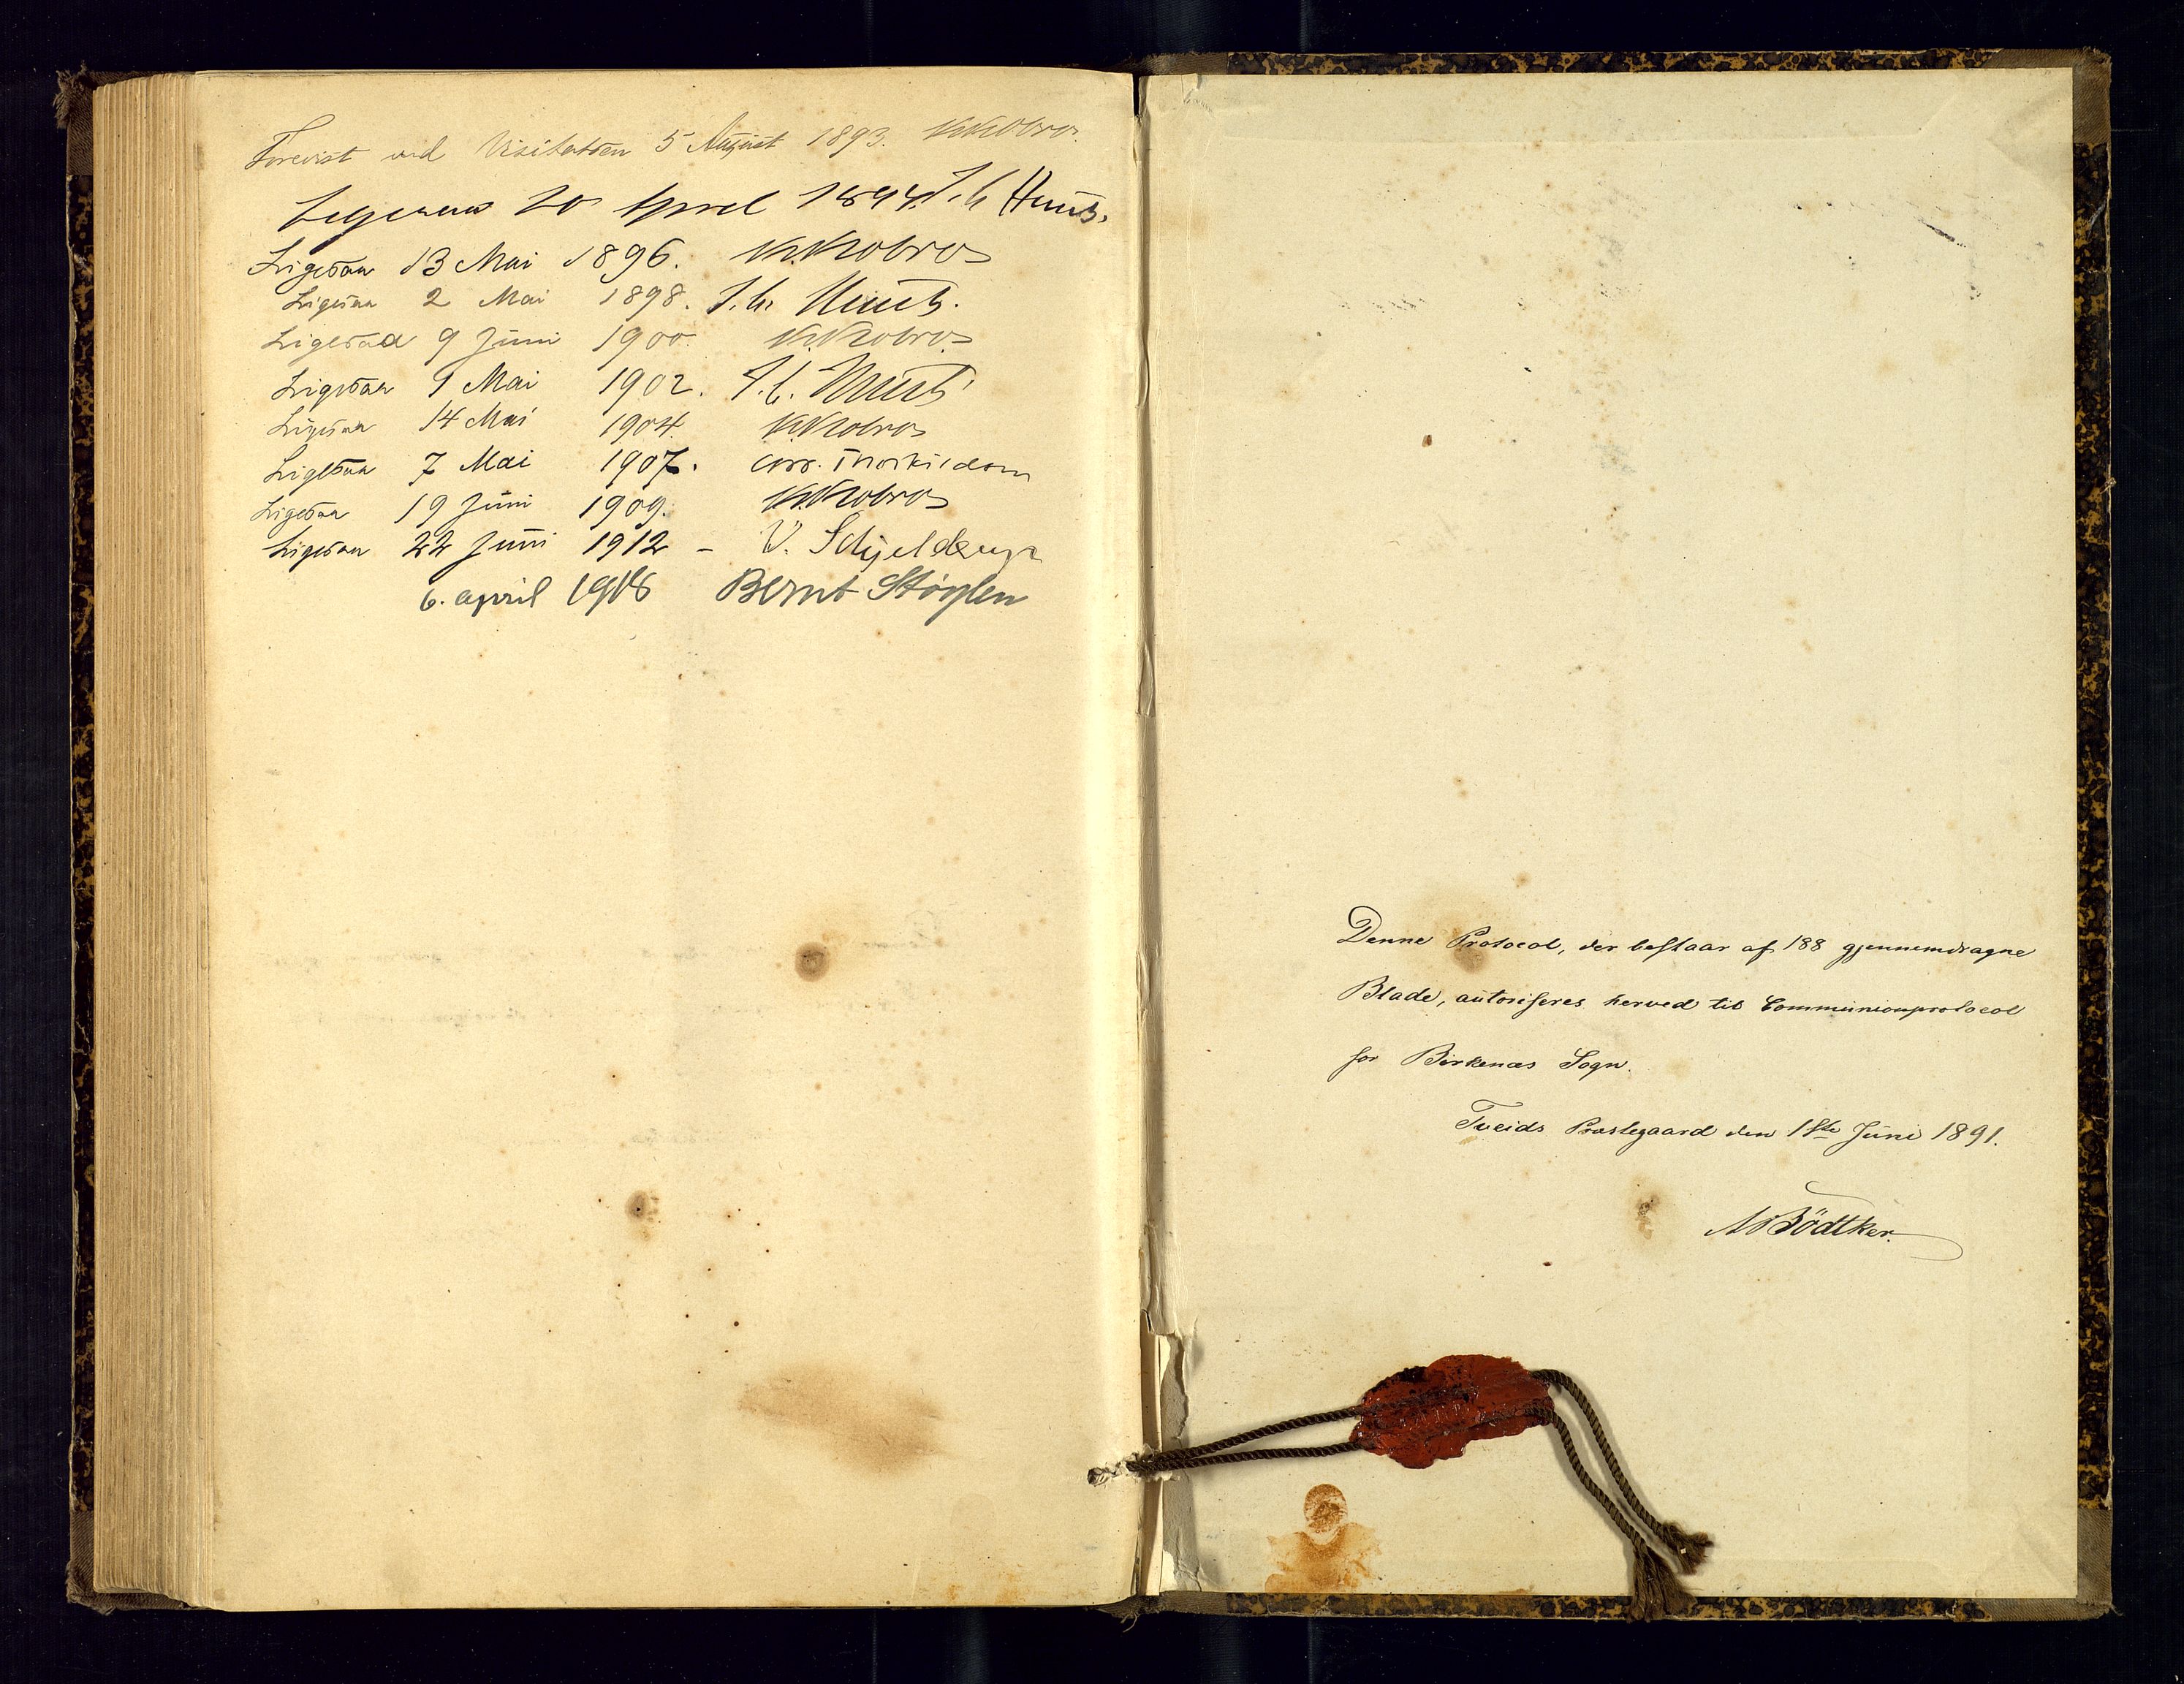 Forevist ved Visitatsen 5 August 1893. KKobro
Ligesaa 20 April 1894. J. C. Heuch.
Ligesaa 13 Mai 1896. KKobro
Ligesaa 2 Mai 1898. J. C. Heuch.
Ligesaa 9 Juni 1900. KKobro
Ligesaa 1 Mai 1902. J. C. Heuch
Ligesaa 14 Mai 1904. KKobro
Ligesaa 7 Mai 1907. Chr. Thorkildsen
Ligesaa 19 Juni 1909. KKobro
Ligesaa 22 Juni 1912 – V. Schjelderup
6. april 1918 Bernt Støylen
Denne Protocol, der bestaar af 188 gjennemdragne
Blade, autoriseres herved til Communionprotocol
for Birkenæs Sogn.
Tveids Præstegaard den 1ste Juni 1891.
Bødtker.